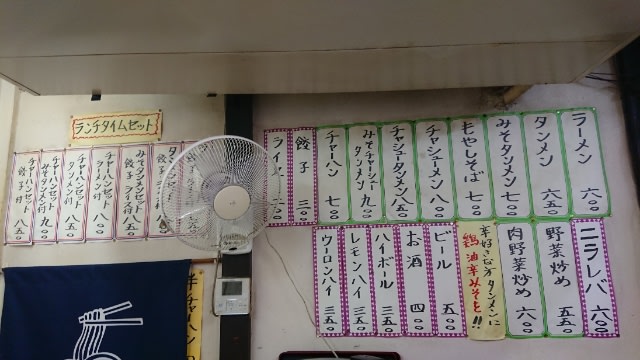 ラーメン 六〇〇
タンメン 六五〇
みそタンメン 七〇〇
もやしそば 七〇〇
チャシューメン 八〇〇
チャシュータンメン 八五〇
みそチャーシュータンメン 九〇〇
チャーハン 七〇〇
餃子 三〇〇
ライス
ニラレバ 六〇〇
野菜炒め 五五〇
肉野菜炒め 六〇〇
辛好きな方タンメンに
鶏油辛みそを!!
ビール 五〇〇
お酒 四〇〇
ハイボール 三五〇
レモンハイ 三五〇
ウーロンハイ 三五〇
ランチタイムセット
みそタンメンセット
餃子
チャーハンセット
チャーハンセット
タンメン付 八五〇
チャーハンセット
チャーハンセット
餃子付
半チャーハン